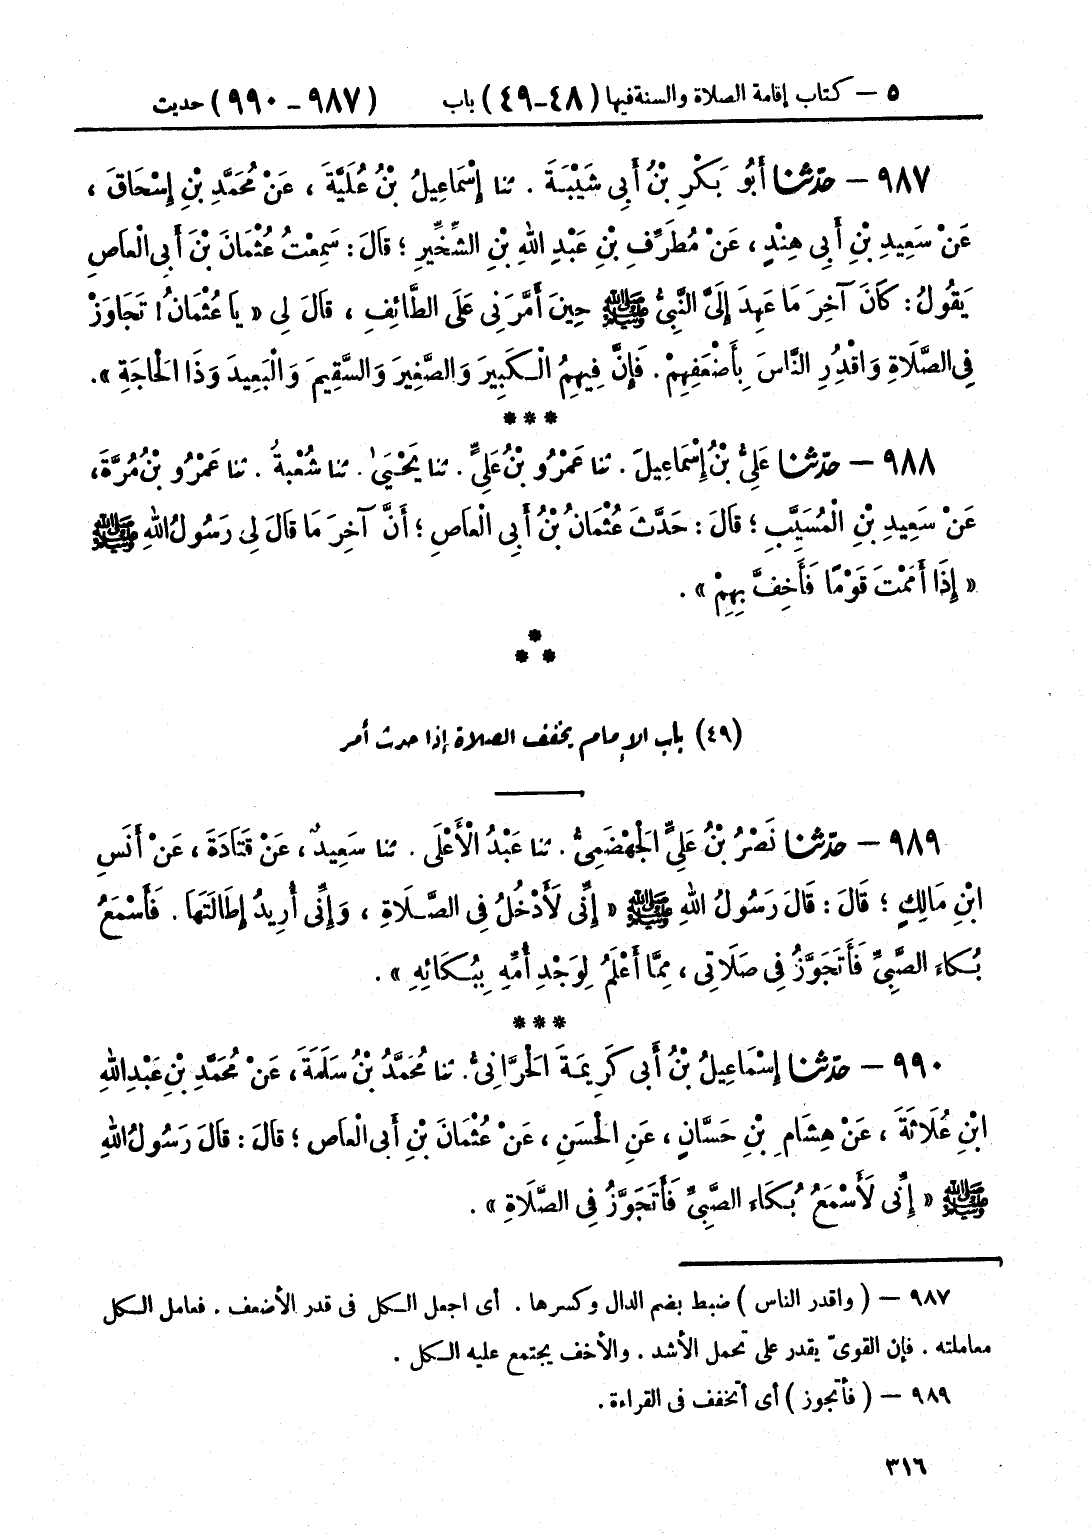 ٥ – كتاب إقامة الصلاة والسنة فيها (٤٨-٤٩) باب (٩٨٧ – ٩٩٠) حديث
٩٨٧ – حدّثنا أَبُو بَكْرِ بْنُ أَبِي شَيْبَةَ . ثنا إِسْمَاعِيلُ بْنُ عُلَيَّةَ ، عَنْ مُحَمَّدِ بْنِ إِسْحَاقَ ،
عَنْ سَعِيدِ بْنِ أَبِي هِنْدٍ ، عَنْ مُطَرِّفِ بْنِ عَبْدِ اللهِ بْنِ الشِّخِّيرِ ؛ قَالَ : سَمِعْتُ عُثْمَانَ بْنَ أَبِي الْعَاصِ
يَقُولُ : كَانَ آخِرَ مَا عَهِدَ إِلَيَّ النَّبِيُّ ﷺ حِينَ أَمَّرَنِي عَلَى الطَّائِفِ ، قَالَ لِي « يَا عُثْمَانُ ! تَجَاوَزْ
فِي الصَّلَاةِ وَاقْدُِرِ النَّاسَ بِأَضْعَفِهِمْ . فَإِنَّ فِيهِمُ الْكَبِيرَ وَالصَّغِيرَ وَالسَّقِيمَ وَالْبَعِيدَ وَذَا الْحَاجَةِ » .
***
٩٨٨ – حدّثنا عَلِيُّ بْنُ إِسْمَاعِيلَ . ثنا عَمْرُو بْنُ عَلِيٍّ . ثنا يَحْيَىٰ . ثنا شُعْبَةُ . ثنا عَمْرُو بْنُ مُرَّةَ ،
عَنْ سَعِيدِ بْنِ الْمُسَيَّبِ ؛ قَالَ : حَدَّثَ عُثْمَانُ بْنُ أَبِي الْعَاصِ ؛ أَنَّ آخِرَ مَا قَالَ لِي رَسُولُ اللهِ ﷺ
« إِذَا أَمَمْتَ قَوْمًا فَأَخِفَّ بِهِمْ » .
*
* *
(٤٩) باب الإمام يخفف الصلاة إذا حدث أمر
٩٨٩ – حدّثنا نَصْرُ بْنُ عَلِيٍّ الْجَهْضَمِيُّ . ثنا عَبْدُ الْأَعْلَى . ثنا سَعِيدٌ ، عَنْ قَتَادَةَ ، عَنْ أَنَسِ
ابْنِ مَالِكٍ ؛ قَالَ : قَالَ رَسُولُ اللهِ ﷺ « إِنِّي لَأَدْخُلُ فِي الصَّلَاةِ ، وَإِنِّي أُرِيدُ إِطَالَتَهَا . فَأَسْمَعُ
بُكَاءَ الصَّبِيِّ فَأَتَجَوَّزُ فِي صَلَاتِي ، مِمَّا أَعْلَمُ لِوَجْدِ أُمِّهِ بِبُكَائِهِ » .
***
٩٩٠ – حدّثنا إِسْمَاعِيلُ بْنُ أَبِي كَرِيمَةَ الْحَرَّانِيُّ . ثنا مُحَمَّدُ بْنُ سَلَمَةَ ، عَنْ مُحَمَّدِ بْنِ عَبْدِ اللهِ
ابْنِ عُلَاثَةَ ، عَنْ هِشَامِ بْنِ حَسَّانٍ ، عَنِ الْحَسَنِ ، عَنْ عُثْمَانَ بْنِ أَبِي الْعَاصِ ؛ قَالَ : قَالَ رَسُولُ اللهِ
ﷺ « إِنِّي لَأَسْمَعُ بُكَاءَ الصَّبِيِّ فَأَتَجَوَّزُ فِي الصَّلَاةِ » .
٩٨٧ – ( واقدر الناس ) ضبط بضم الدال وكسرها . أى اجعل الكل فى قدر الأضعف . فعامل الكل
معاملته . فإن القوىّ يقدر على تحمل الأشد . والأخف يجتمع عليه الكل .
٩٨٩ – ( فأتجوز ) أى أتخفف فى القراءة .
٣١٦